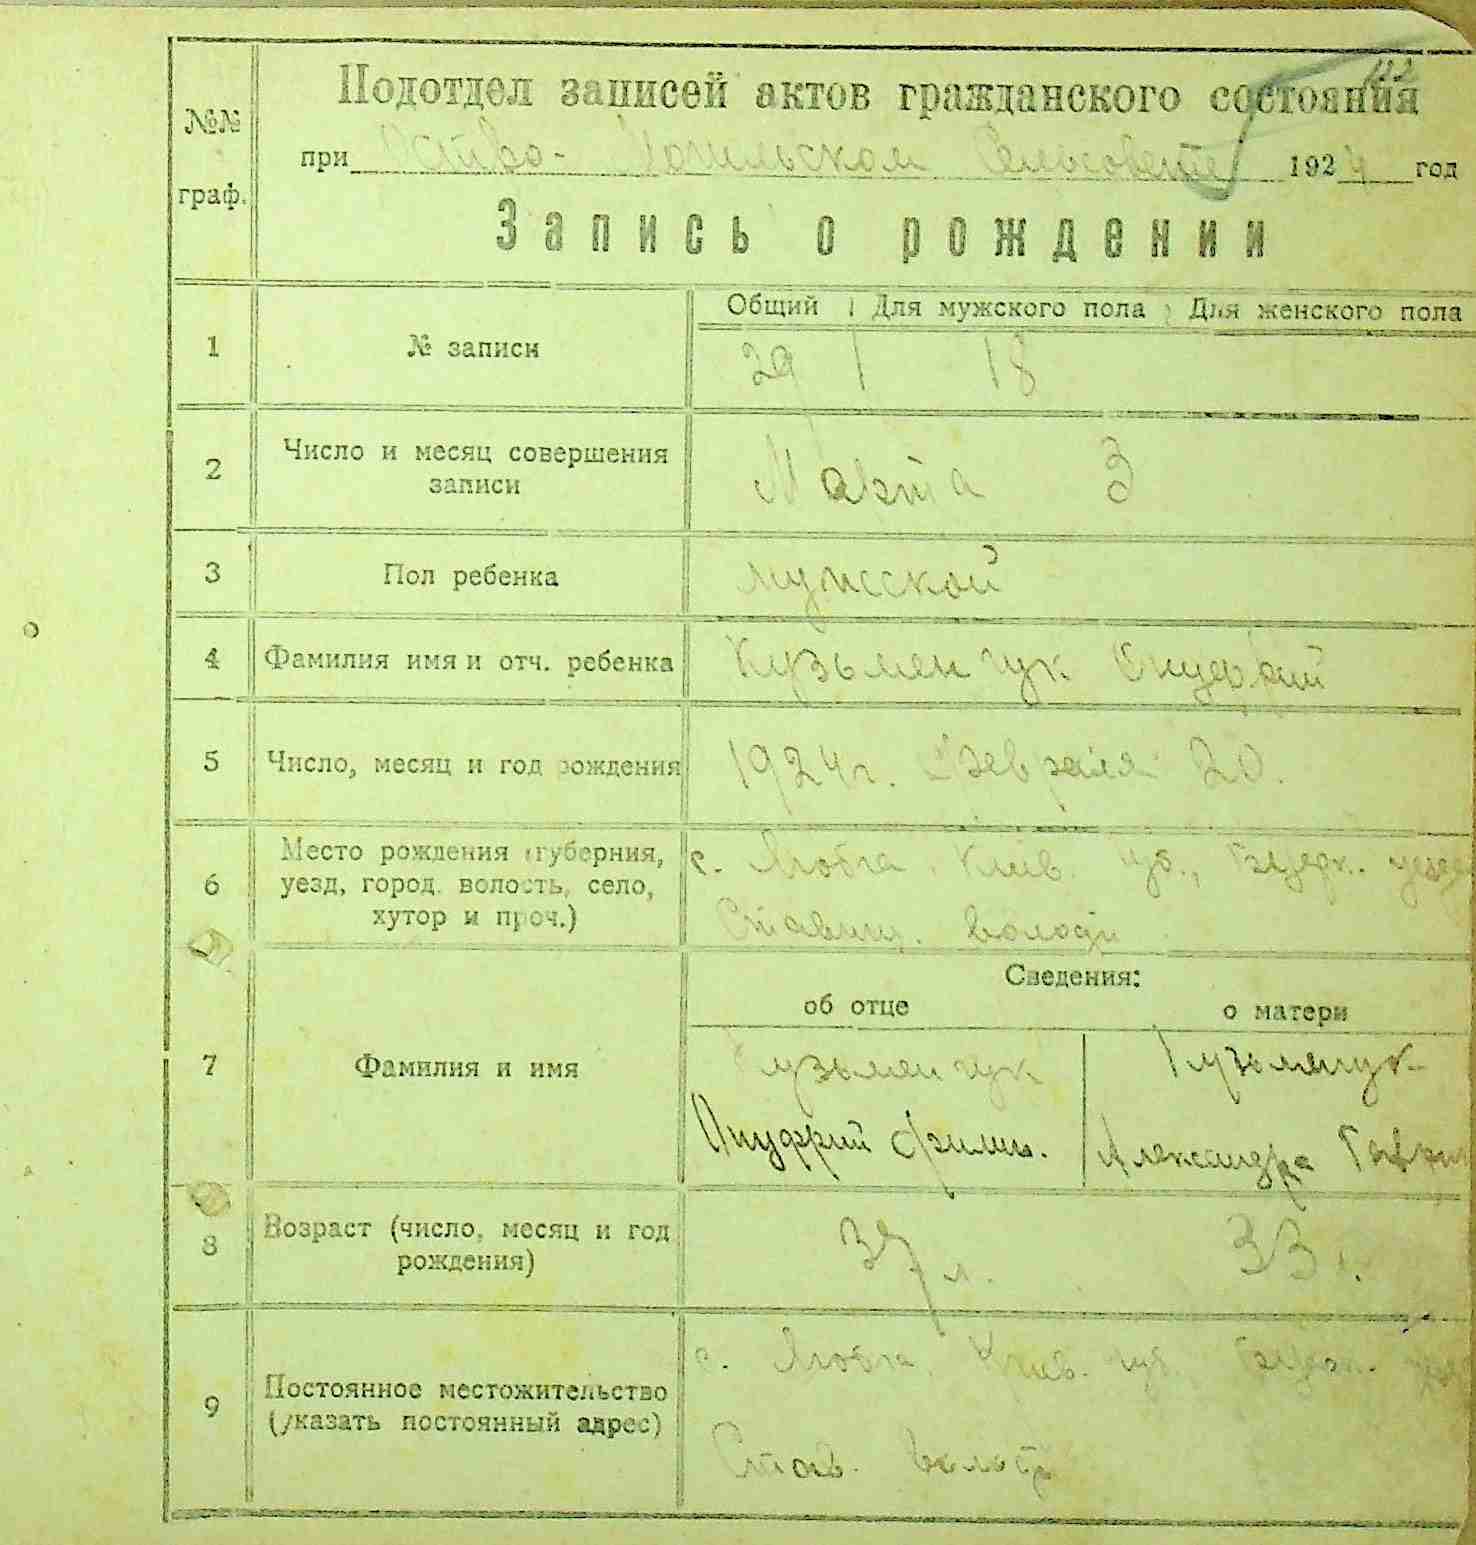 122
Подотдел записей актов гражданского состояния
№№
граф.
при Сельсовете 1924 год
Запись о рождении
Общий Для мужского пола Для женского пола
1 № записи 29 18
2 Число и месяц совершения
записи
Марта 3
3 Пол ребенка мужской
4 Фамилия имя и отч. ребенка Кузьменчук
5 Число, месяц и год рождения 1924 г. Февраля 20.
6 Место рождения (губерния,
уезд, город, волость, село,
хутор и проч.)
с. Киев. губ.,
Ставищ.
Сведения:
об отце о матери
7 Фамилия и имя
Кузьменчук
Александра
8 Возраст (число, месяц и год
рождения)
л. 33
9 Постоянное местожительство
(указать постоянный адрес)
с. Киев. губ.
Став.